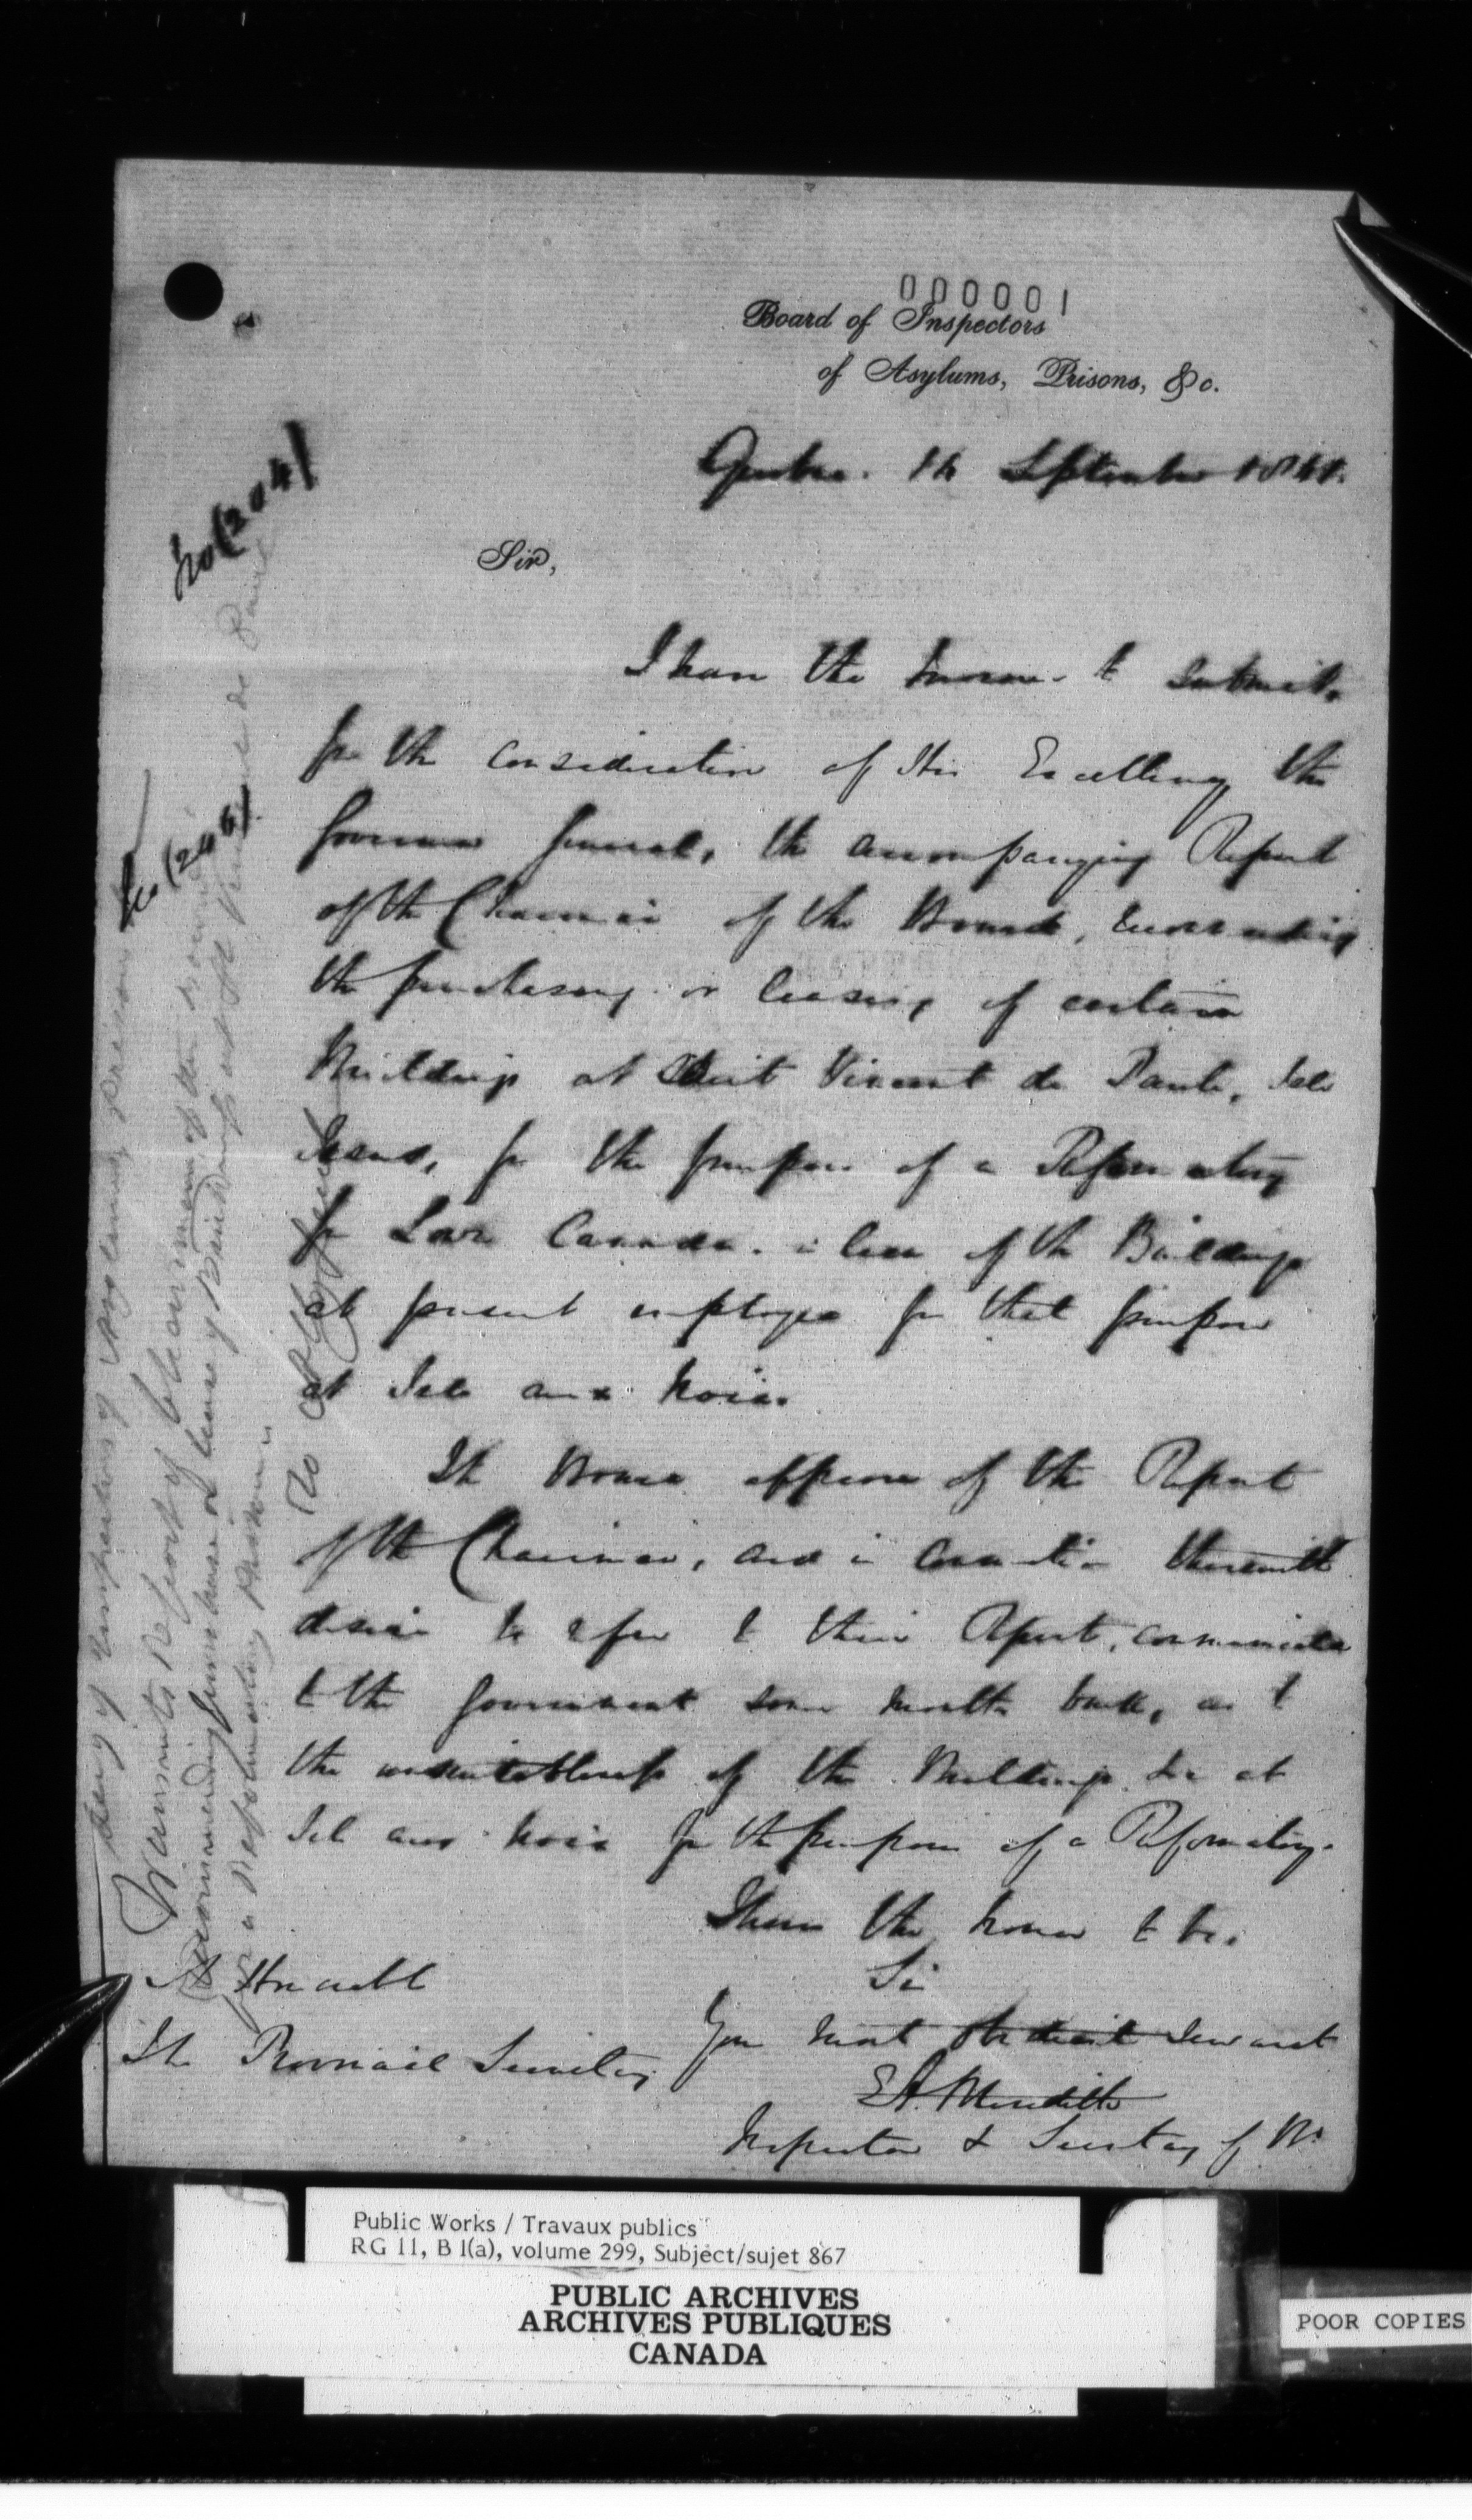 000001
Board of Inspectors
of Asylums, Prisons, &c.
Quebec. 14 September 1861.
Sir,
I have the honor to submit,
for the consideration of His Excellency the
Governor General, the accompanying Report
of the Chairman of the Board, recommending
the purchasing or leasing of certain
Buildings at Saint Vincent de Paule, Isle
Jesus, for the purpose of a Reformatory
for Lower Canada. in lieu of the Buildings
at present employed for that purpose
at Isle aux Noix.
The Board approve of the Report
of the Chairman, and in connection therewith
desire to refer to their Report, communicated
to the Government some months back, as to
the unsuitableness of the Buildings &c at
Isle aux Noix for the purpose of a Reformatory.
I have the honor to be,
Sir
Your most obedient Servant
E A. Meredith
Inspector & Secretary of Bd
The Honorable
The Provincial Secretary
No (204)
No (206)
Secy of Inspectors of Asylums, Prisons &c
Transmits Report of Chairman of the Board
Recommending purchase or lease of Buildings at St Vincent de Paul
for a Reformatory Prison
Public Works / Travaux publics
RG 11, B 1(a), volume 299, Subject/sujet 867
PUBLIC ARCHIVES
ARCHIVES PUBLIQUES
CANADA
POOR COPIES